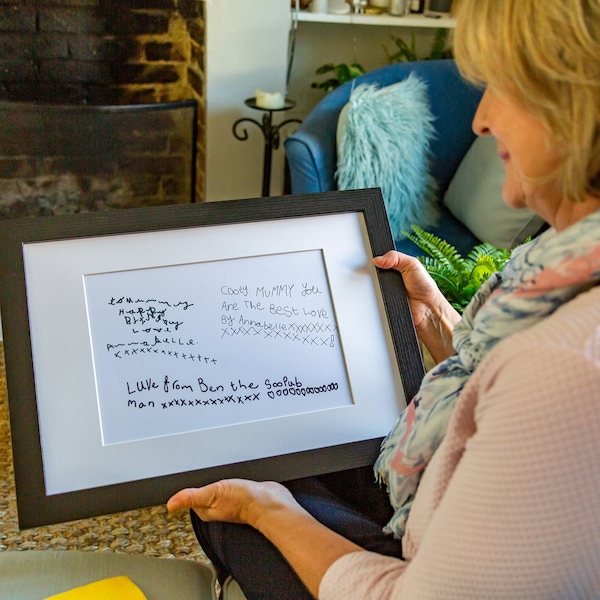 to Mummy
Happy
Birthday
Love
Annabelle.
xxxxxxxxx++++
Cooey MUMMY You
Are The BEST Love
By Annabellexxxxxxx
xxxxxxxxxxxxxxxx
LUVe from Ben the SooPub
man xxxxxxxxxxxx